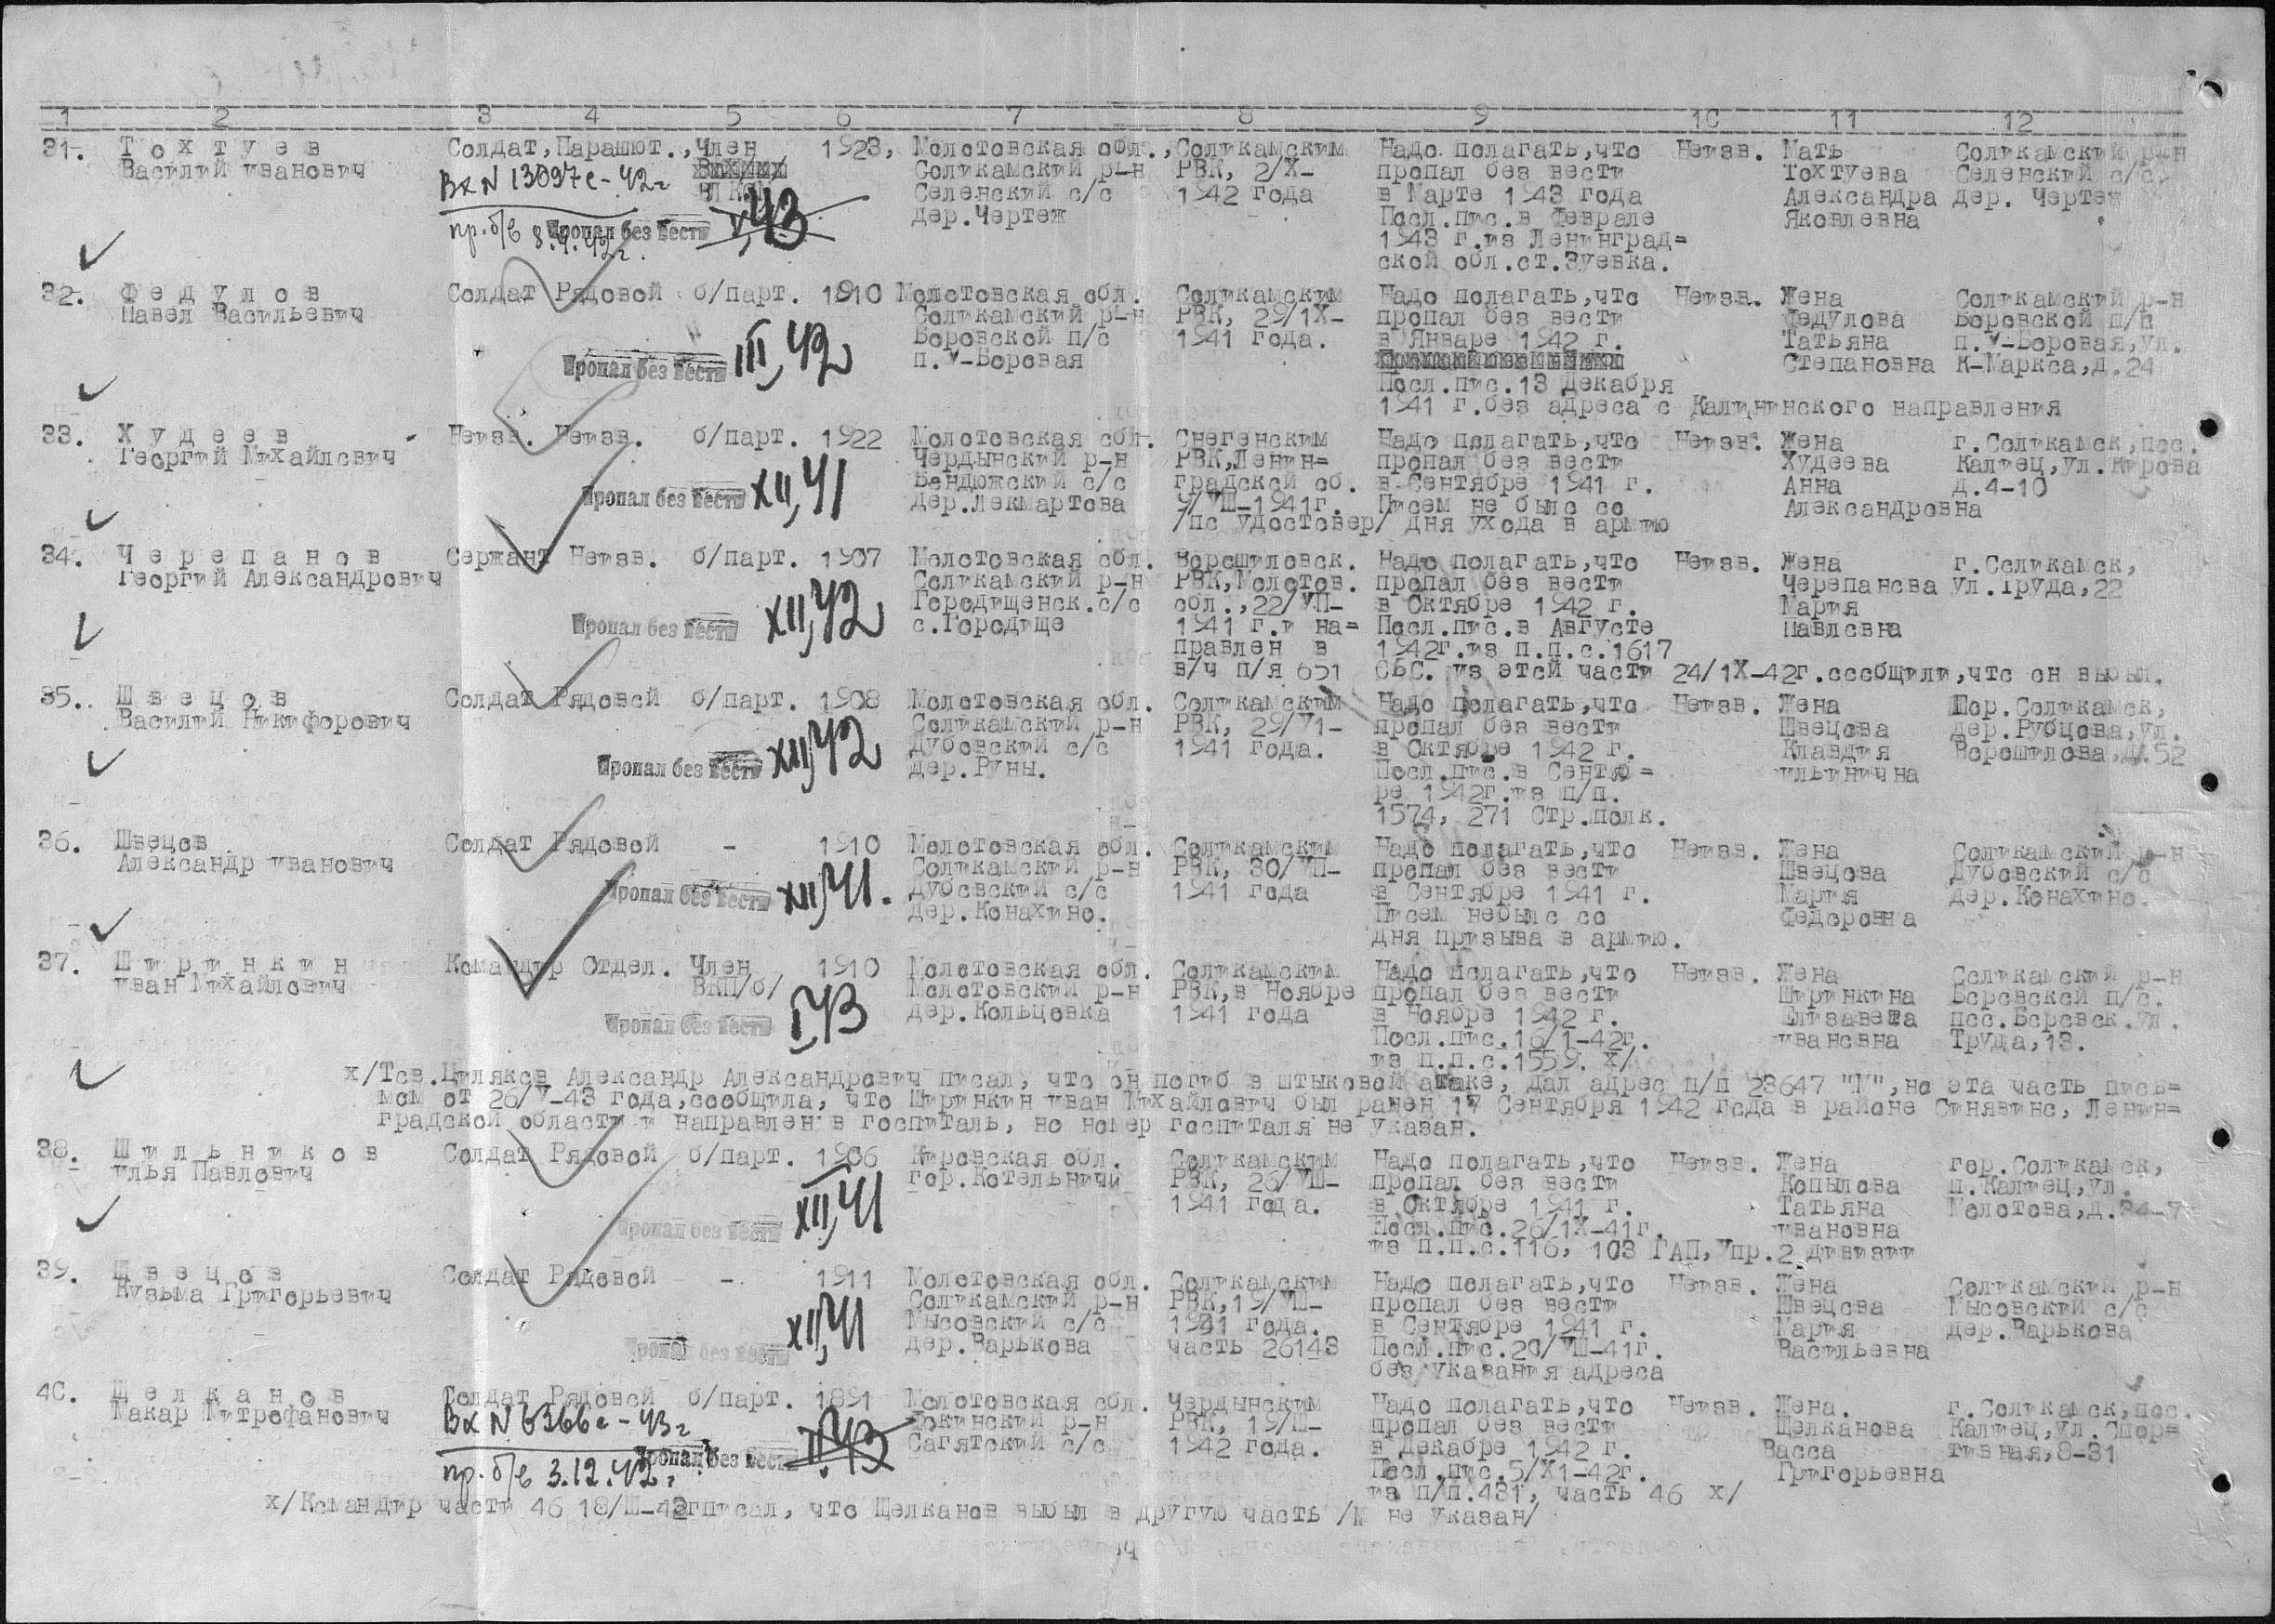 1 2 3 4 5 6 7 8 9 10 11 12
31. Тохтуев Солдат, Парашют., Член 1923, Молотовская обл., Соликамским Надо полагать,что Неизв. Мать Соликамский р-н
Василий иванович Вх N 13097с-42г ВЛКСМ Соликамский р-н РВК, 2/X- пропал без вести Тохтуева Селенский с/с
Селенский с/с 1942 года в Марте 1943 года Александра дер. Чертеж
пр.б/в Пропал без вести V,43 дер.Чертеж Посл.пис.в феврале Яковлевна
1943 г.из Ленинград=
ской обл.ст.Зуевка.
32. Федулов Солдат Рядовой б/парт. 1910 Молотовская обл. Соликамским Надо полагать,что Неизв. Жена Соликамский р-н
Павел Васильевич Соликамский р-н РВК, 29/1X- пропал без вести Федулова Боровской п/с
Боровской п/с 1941 года. в Январе 1942 г. Татьяна п.У-Боровая,ул.
Пропал без вести III,42 п.У-Боровая Степановна К-Маркса,д.24
Посл.пис.13 Декабря
1941 г.без адреса с Калининского направления
33. Худеев Неизв. Неизв. б/парт. 1922 Молотовская обл. Снегенским Надо полагать,что Неизв. Жена г.Соликамск,пос.
Георгий Михайлович Чердынский р-н РВК,Ленин= пропал без вести Худеева Калиец,ул.Кирова
Пропал без вести XII,41 Бендюжский с/с градской об. в Сентябре 1941 г. Анна д.4-10
дер.Лекмартова 9/УШ-1941г. Писем не было со Александровна
/по удостовер/ дня ухода в армию
34. Черепанов Сержант Неизв. б/парт. 1907 Молотовская обл. Ворошиловск. Надо полагать,что Неизв. Жена г.Соликамск,
Георгий Александрович Соликамский р-н РВК,Молотов. пропал без вести Черепанова ул.Труда,22
Городищенск.с/с обл.,22/УП- в Октябре 1942 г. Мария
Пропал без вести XII,42 с.Городище 1941 г.и на= Посл.пис.в Августе Павловна
правлен в 1942г.из п.п.с.1617
в/ч п/я 651 ОБС. из этой части 24/1X-42г.сообщили,что он выбыл.
35. Швецов Солдат Рядовой б/парт. 1908 Молотовская обл. Соликамским Надо полагать,что Неизв. Жена Гор.Соликамск,
Василий Никифорович Соликамский р-н РВК, 29/У1- пропал без вести Швецова дер.Рубцова,ул.
Пропал без вести XII,42 Дубовский с/с 1941 года. в Октябре 1942 г. Клавдия Ворошилова,д.52
дер.Руны. Посл.пис.в Сентяб= ильинична
ре 1942г.из п/п.
1574, 271 Стр.полк.
36. Швецов Солдат Рядовой - 1910 Молотовская обл. Соликамским Надо полагать,что Неизв. Жена Соликамский р-н
Александр иванович Соликамский р-н РВК, 30/УП- пропал без вести Швецова Дубовский с/с
Пропал без вести XII,41. Дубовский с/с 1941 года в Сентябре 1941 г. Мария дер.Конахино.
дер.Конахино. Писем небыло со Федоровна
дня призыва в армию.
37. Ширинкин Командир Отдел. Член 1910 Молотовская обл. Соликамским Надо полагать,что Неизв. Жена Соликамский р-н
иван Михайлович ВКП/б/ Молотовский р-н РВК,в Ноябре пропал без вести Ширинкина Боровской п/с.
Пропал без вести I,43 дер.Кольцовка 1941 года в Ноябре 1942 г. Елизавета пос.Боровск.ул.
Посл.пис.16/1-42г. ивановна Труда,13.
из п.п.с.1559. х/
х/Тов.Циляков Александр Александрович писал, что он погиб в штыковой атаке, дал адрес п/п 23647 "М",но эта часть пись=
мом от 26/У-43 года,сообщила, что Ширинкин иван Михайлович был ранен 17 Сентября 1942 года в районе Синявино, Ленин=
градской области и направлен в госпиталь, но номер госпиталя не указан.
38. Шильников Солдат Рядовой б/парт. 1906 Кировская обл. Соликамским Надо полагать,что Неизв. Жена гор.Соликамск,
илья Павлович гор.Котельничи РВК, 26/УШ- пропал без вести Копылова п.Калиец,ул.
Пропал без вести XII,41 1941 года. в Октябре 1941 г. Татьяна Молотова,д.
Посл.пис.26/1X-41г. ивановна
из п.п.с.116, 103 ГАП,Упр.2 дивизии
39. Швецов Солдат Рядовой -. 1911 Молотовская обл. Соликамским Надо полагать,что Неизв. Жена Соликамский р-н
Кузьма Григорьевич Соликамский р-н РВК,19/УШ- пропал без вести Швецова Мысовский с/с
Мысовский с/с 1941 года. в Сентябре 1941 г. Мария дер.Варькова
Пропал без вести XII,41 дер.Варькова часть 26143 Посл.пис.20/УШ-41г. Васильевна
без указания адреса
40. Щелканов Солдат Рядовой б/парт. 1891 Молотовская обл. Чердынским Надо полагать,что Неизв. Жена. г.Соликамск,пос.
Макар Митрофанович Вх N 6366с-43г р-н РВК, 19/Ш- пропал без вести Щелканова Калиец,ул.Спор=
Сагятский с/с 1942 года. в Декабре 1942 г. Васса тивная,8-31
пр.б/в 3.12.42г. Пропал без вести II.43 Посл.пис.5/X1-42г. Григорьевна
из п/п.431, часть 46 х/
х/Командир части 46 18/Ш-43гписал, что Щелканов выбыл в другую часть /№ не указан/